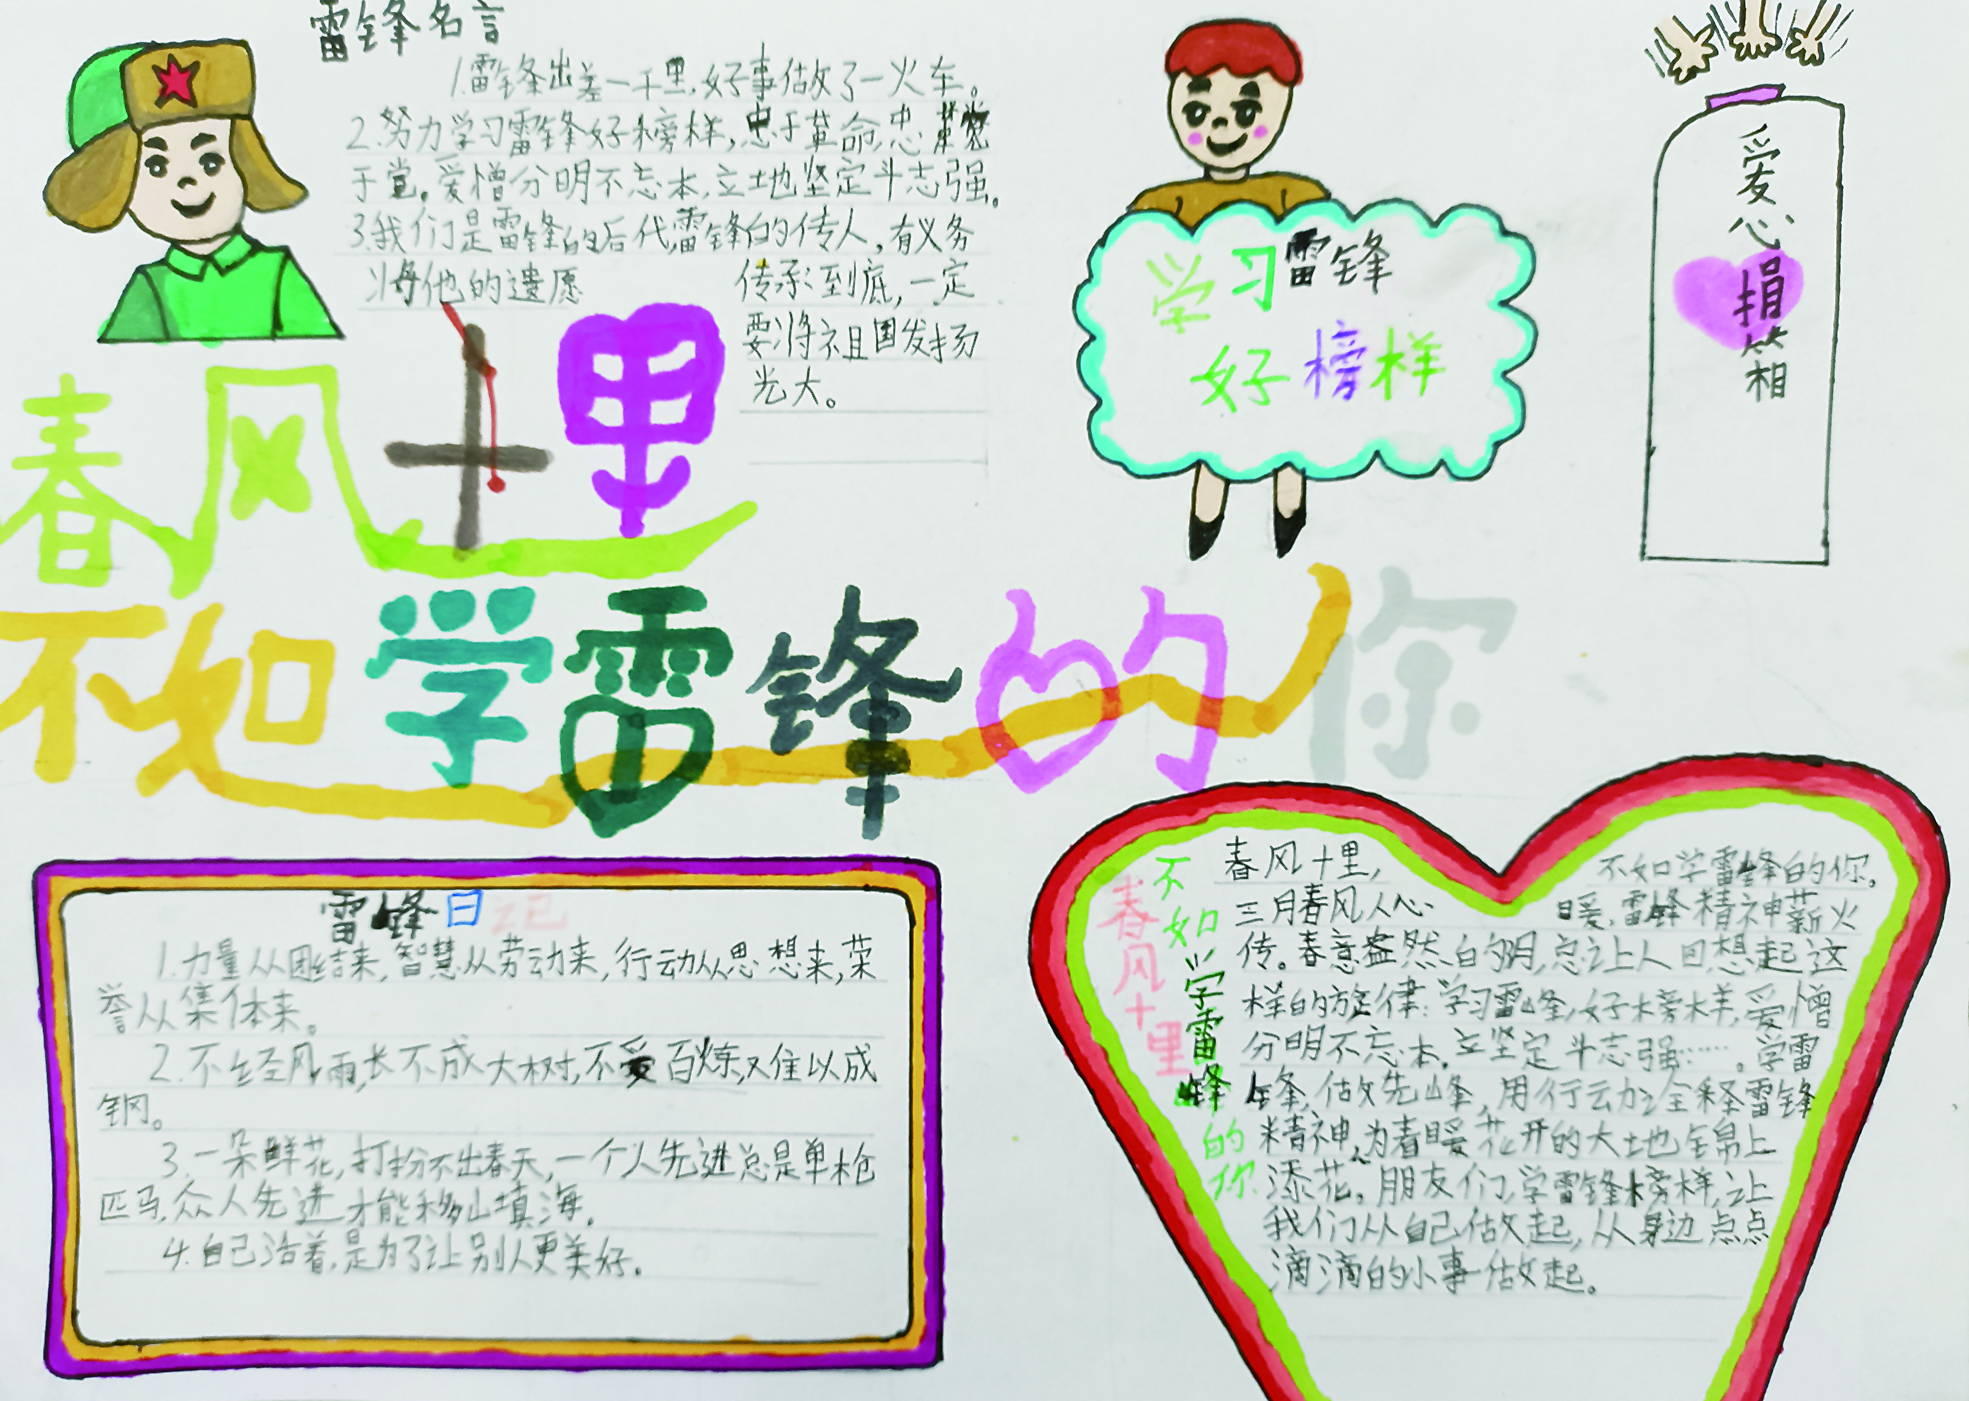 雷锋名言
1.雷锋出差一千里,好事做了一火车。
2.努力学习雷锋好榜样,忠于革命,忠
于党。爱憎分明不忘本,立地坚定斗志强。
3.我们是雷锋的后代,雷锋的传人,有义务
将他的遗愿 传承到底,一定
要将祖国发扬
光大。
学习雷锋
好榜样
爱心捐
箱
春风十里
不如学雷锋的你
雷锋日记
1.力量从团结来,智慧从劳动来,行动从思想来,荣
誉从集体来。
2.不经风雨,长不成大树,不受百炼,难以成
钢。
3.一朵鲜花,打扮不出春天,一个人先进总是单枪
匹马,众人先进才能移山填海。
4.自己活着,是为了让别人更美好。
春风十里
不如学雷锋的你
春风十里, 不如学雷锋的你。
三月春风人心 暖,雷锋精神薪火
传。春意盎然的明,总让人回想起这
样的旋律:学习雷峰,好榜样,爱憎
分明不忘本,立坚定斗志强……。学雷
锋,做先峰,用行动全释雷锋
精神,为春暖花开的大地锦上
添花。朋友们,学雷锋榜样,让
我们从自己做起,从身边点点
滴滴的小事做起。